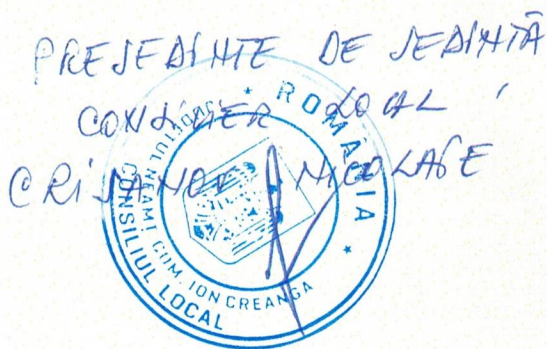 PREȘEDINTE DE ȘEDINȚĂ
CONSILIER LOCAL
CRIȘANOV NICOLAE
* ROMANIA *
JUDEȚUL NEAMȚ COM. ION CREANGA
CONSILIUL LOCAL